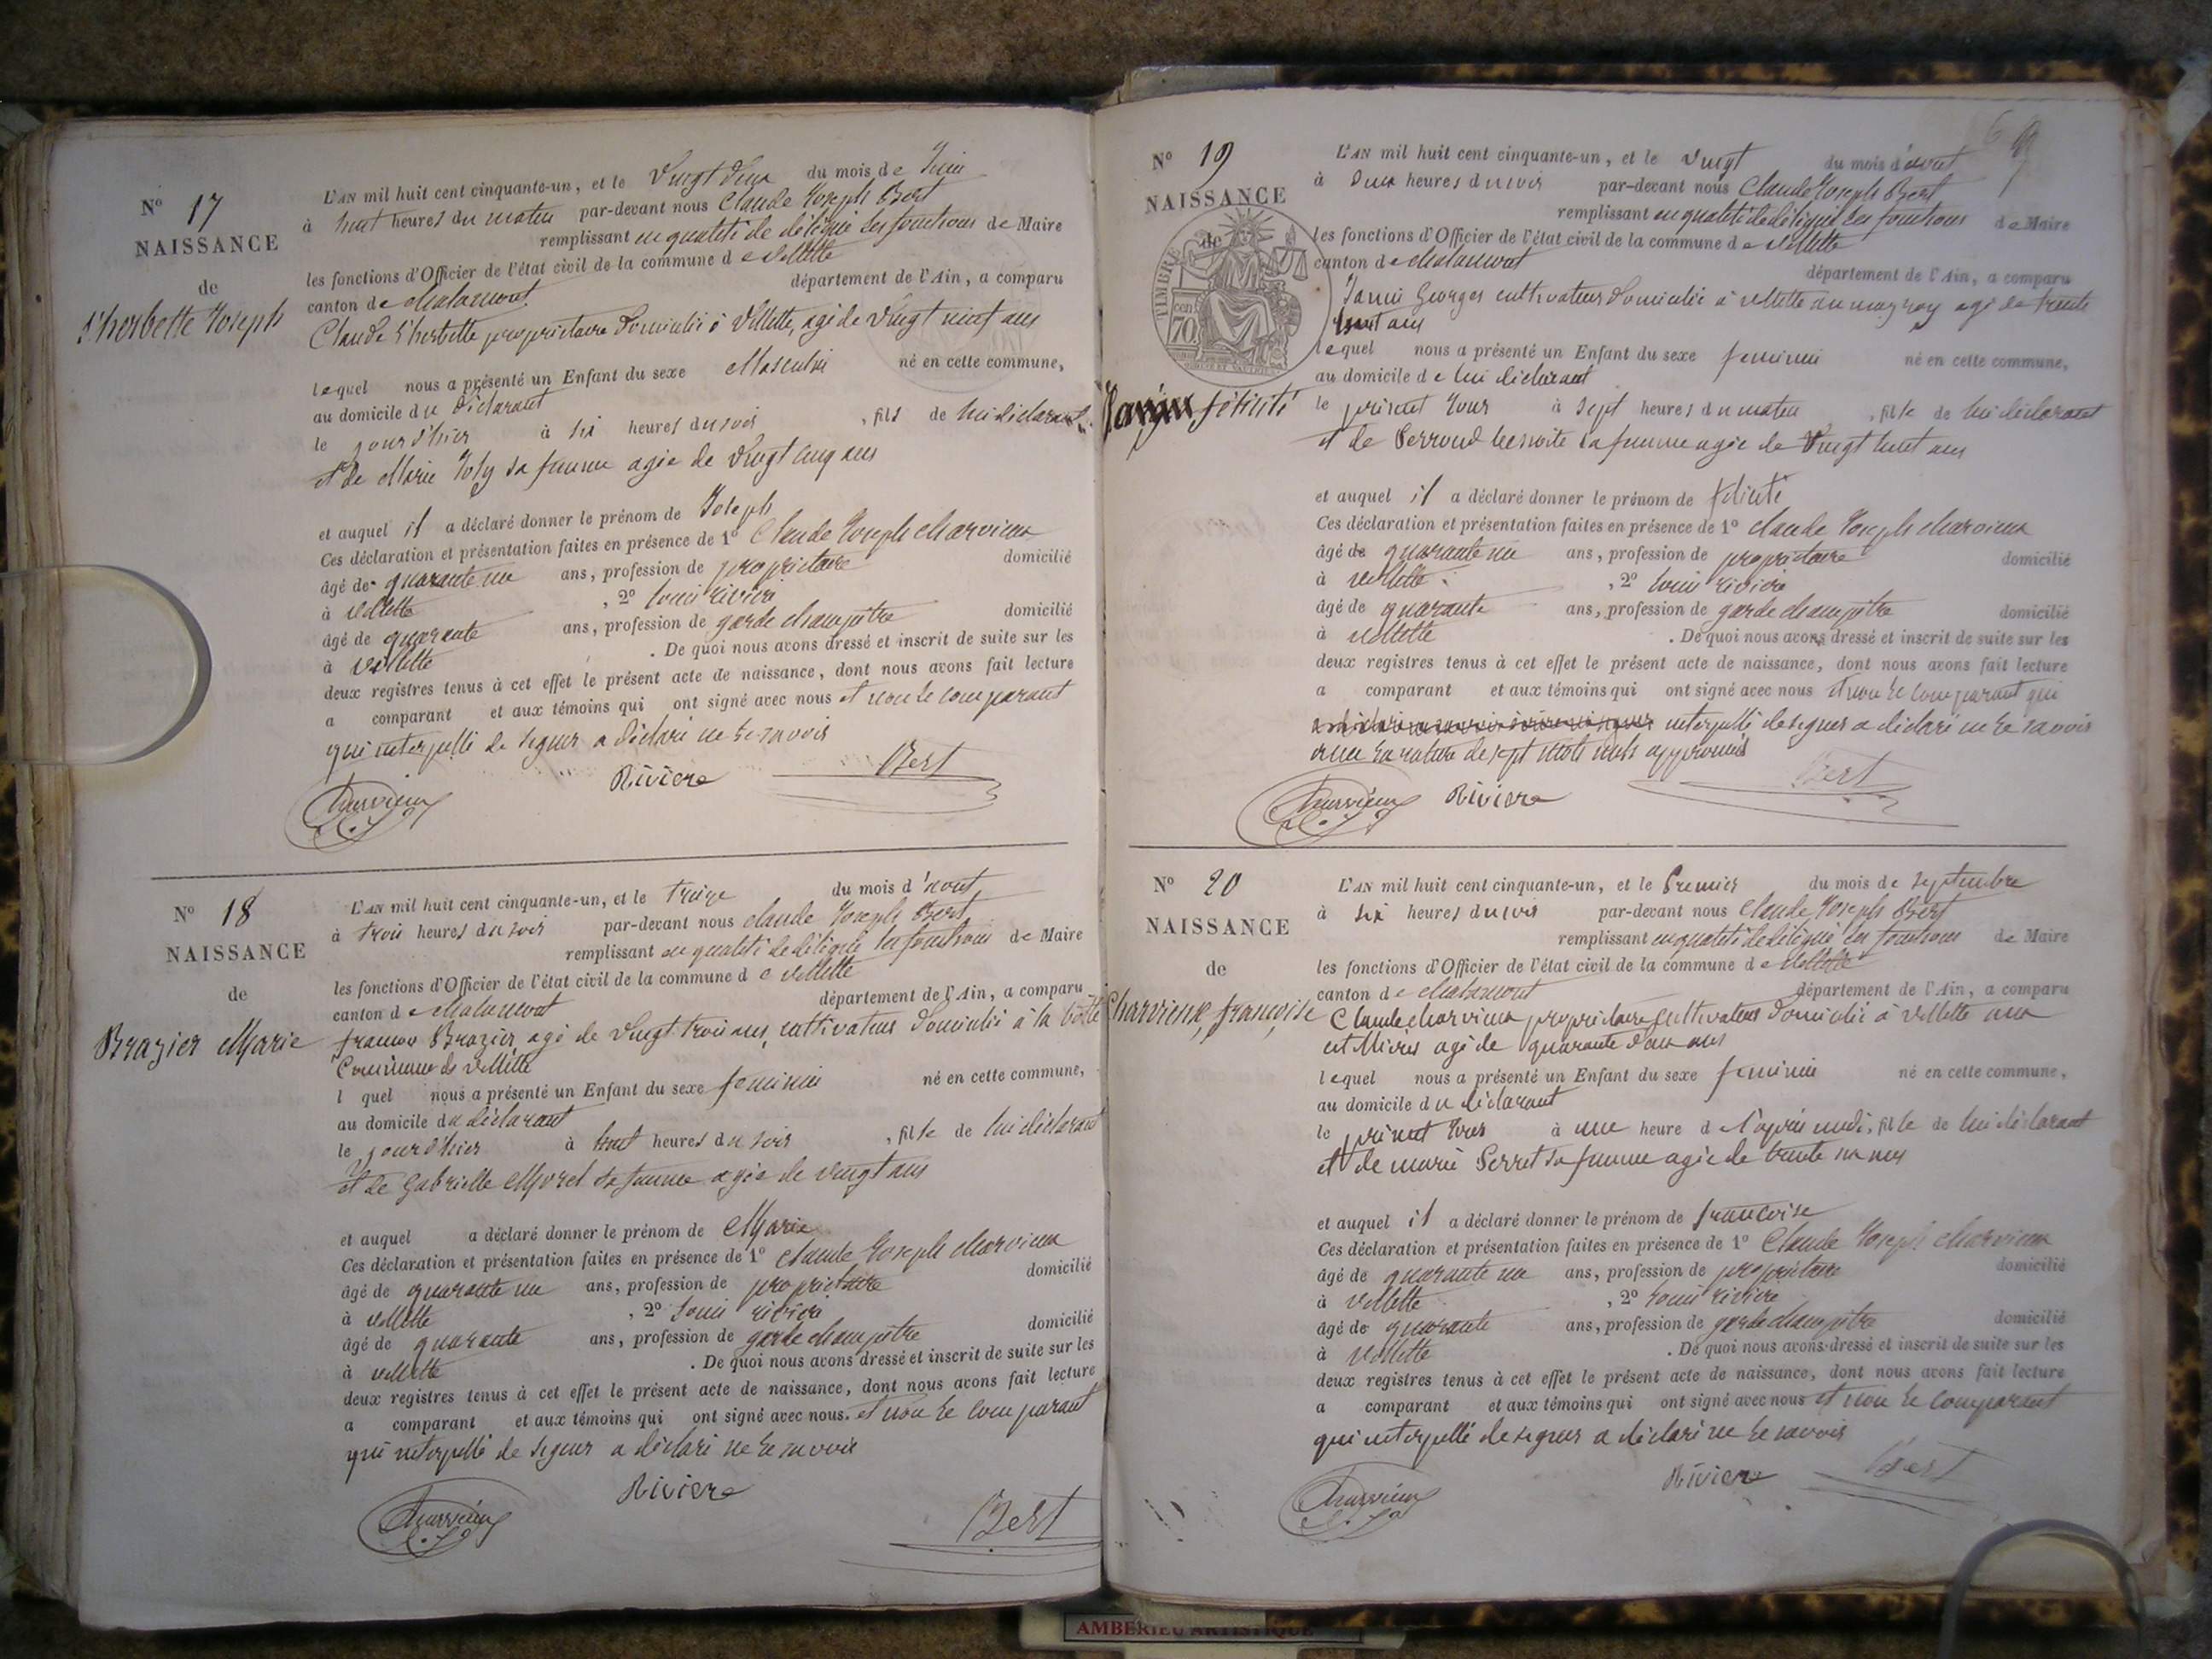 N° 17
NAISSANCE
de
L'herbette Joseph
L'AN mil huit cent cinquante-un, et le Vingt deux du mois de Juin
à huit heures du matin par-devant nous Claude Joseph Bert
remplissant en qualité de délégué les fonctions de Maire
les fonctions d'Officier de l'état civil de la commune de Villette
canton de Chalamont département de l'Ain, a comparu
Claude L'herbette propriétaire domicilié à Villette, agé de Vingt neuf ans
lequel nous a présenté un Enfant du sexe Masculin né en cette commune,
au domicile du déclarant
le jour d'hier à six heures du soir, fils de lui déclarant
et de Marie Joly sa femme agée de Vingt cinq ans
et auquel il a déclaré donner le prénom de Joseph
Ces déclaration et présentation faites en présence de 1° Claude Joseph Charvieux
âgé de quarante un ans, profession de propriétaire domicilié
à Villette, 2° Louis Rivière
âgé de quarante ans, profession de garde champêtre domicilié
à Villette. De quoi nous avons dressé et inscrit de suite sur les
deux registres tenus à cet effet le présent acte de naissance, dont nous avons fait lecture
a comparant et aux témoins qui ont signé avec nous et non le comparant
qui interpellé de signer a déclaré ne le savoir
Charvieux
C. J.
Riviere
Bert
N° 18
NAISSANCE
de
Brazier Marie
L'AN mil huit cent cinquante-un, et le treize du mois d'aout
à trois heures du soir par-devant nous Claude Joseph Bert
remplissant en qualité de délégué les fonctions de Maire
les fonctions d'Officier de l'état civil de la commune de Villette
canton de Chalamont département de l'Ain, a comparu
Brazier, agé de Vingt trois ans, cultivateur domicilié à la
Commune de Villette
l quel nous a présenté un Enfant du sexe féminin né en cette commune,
au domicile du déclarant
le jour d'hier à huit heures du soir, fille de lui déclarant
et de Gabrielle Morel sa femme agée de vingt ans
et auquel a déclaré donner le prénom de Marie
Ces déclaration et présentation faites en présence de 1° Claude Joseph Charvieux
âgé de quarante un ans, profession de propriétaire domicilié
à Villette, 2° Louis Rivière
âgé de quarante ans, profession de garde champêtre domicilié
à Villette. De quoi nous avons dressé et inscrit de suite sur les
deux registres tenus à cet effet le présent acte de naissance, dont nous avons fait lecture
a comparant et aux témoins qui ont signé avec nous. et non le comparant
qui interpellé de signer a déclaré ne le savoir
Charvieux
C. J.
Riviere
Bert
N° 19
NAISSANCE
de
TIMBRE
70 cen
félicité
L'AN mil huit cent cinquante-un, et le Vingt du mois d'aout
à deux heures du soir par-devant nous Claude Joseph Bert
remplissant en qualité de délégué les fonctions de Maire
les fonctions d'Officier de l'état civil de la commune de Villette
canton de Chalamont département de l'Ain, a comparu
Georges cultivateur domicilié à Villette agé de trente
huit ans
lequel nous a présenté un Enfant du sexe féminin né en cette commune,
au domicile de lui déclarant
le présent jour à sept heures du matin, fille de lui déclarant
et de Perroud benoite sa femme agée de Vingt huit ans
et auquel il a déclaré donner le prénom de félicité
Ces déclaration et présentation faites en présence de 1° Claude Joseph Charvieux
âgé de quarante un ans, profession de propriétaire domicilié
à Villette, 2° Louis Rivière
âgé de quarante ans, profession de garde champêtre domicilié
à Villette. De quoi nous avons dressé et inscrit de suite sur les
deux registres tenus à cet effet le présent acte de naissance, dont nous avons fait lecture
a comparant et aux témoins qui ont signé avec nous et non le comparant qui
interpellé de signer a déclaré ne le savoir
avec la rature de sept mots nuls approuvés
Charvieux
C. J.
Riviere
Bert
N° 20
NAISSANCE
de
Charvieux françoise
L'AN mil huit cent cinquante-un, et le Premier du mois de Septembre
à six heures du soir par-devant nous Claude Joseph Bert
remplissant en qualité de délégué les fonctions de Maire
les fonctions d'Officier de l'état civil de la commune de Villette
canton de Chalamont département de l'Ain, a comparu
Claude Charvieux propriétaire cultivateur domicilié à Villette aux
agé de quarante deux ans
lequel nous a présenté un Enfant du sexe féminin né en cette commune,
au domicile du déclarant
le présent jour à une heure de l'après midi, fille de lui déclarant
et de marie Perret sa femme agée de trente ans
et auquel il a déclaré donner le prénom de françoise
Ces déclaration et présentation faites en présence de 1° Claude Joseph Charvieux
âgé de quarante un ans, profession de propriétaire domicilié
à Villette, 2° Louis Rivière
âgé de quarante ans, profession de garde champêtre domicilié
à Villette. De quoi nous avons dressé et inscrit de suite sur les
deux registres tenus à cet effet le présent acte de naissance, dont nous avons fait lecture
a comparant et aux témoins qui ont signé avec nous et non le comparant
qui interpellé de signer a déclaré ne le savoir
Charvieux
C. J.
Riviere
Bert
AMBERIEU ARTISTIQUE